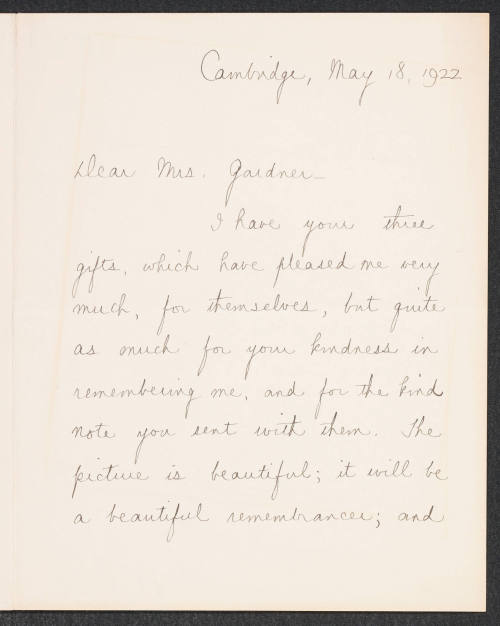 Cambridge, May 18, 1922
Dear Mrs. Gardner—
I have your three
gifts, which have pleased me very
much, for themselves, but quite
as much for your kindness in
remembering me, and for the kind
note you sent with them. The
picture is beautiful; it will be
a beautiful remembrancer; and